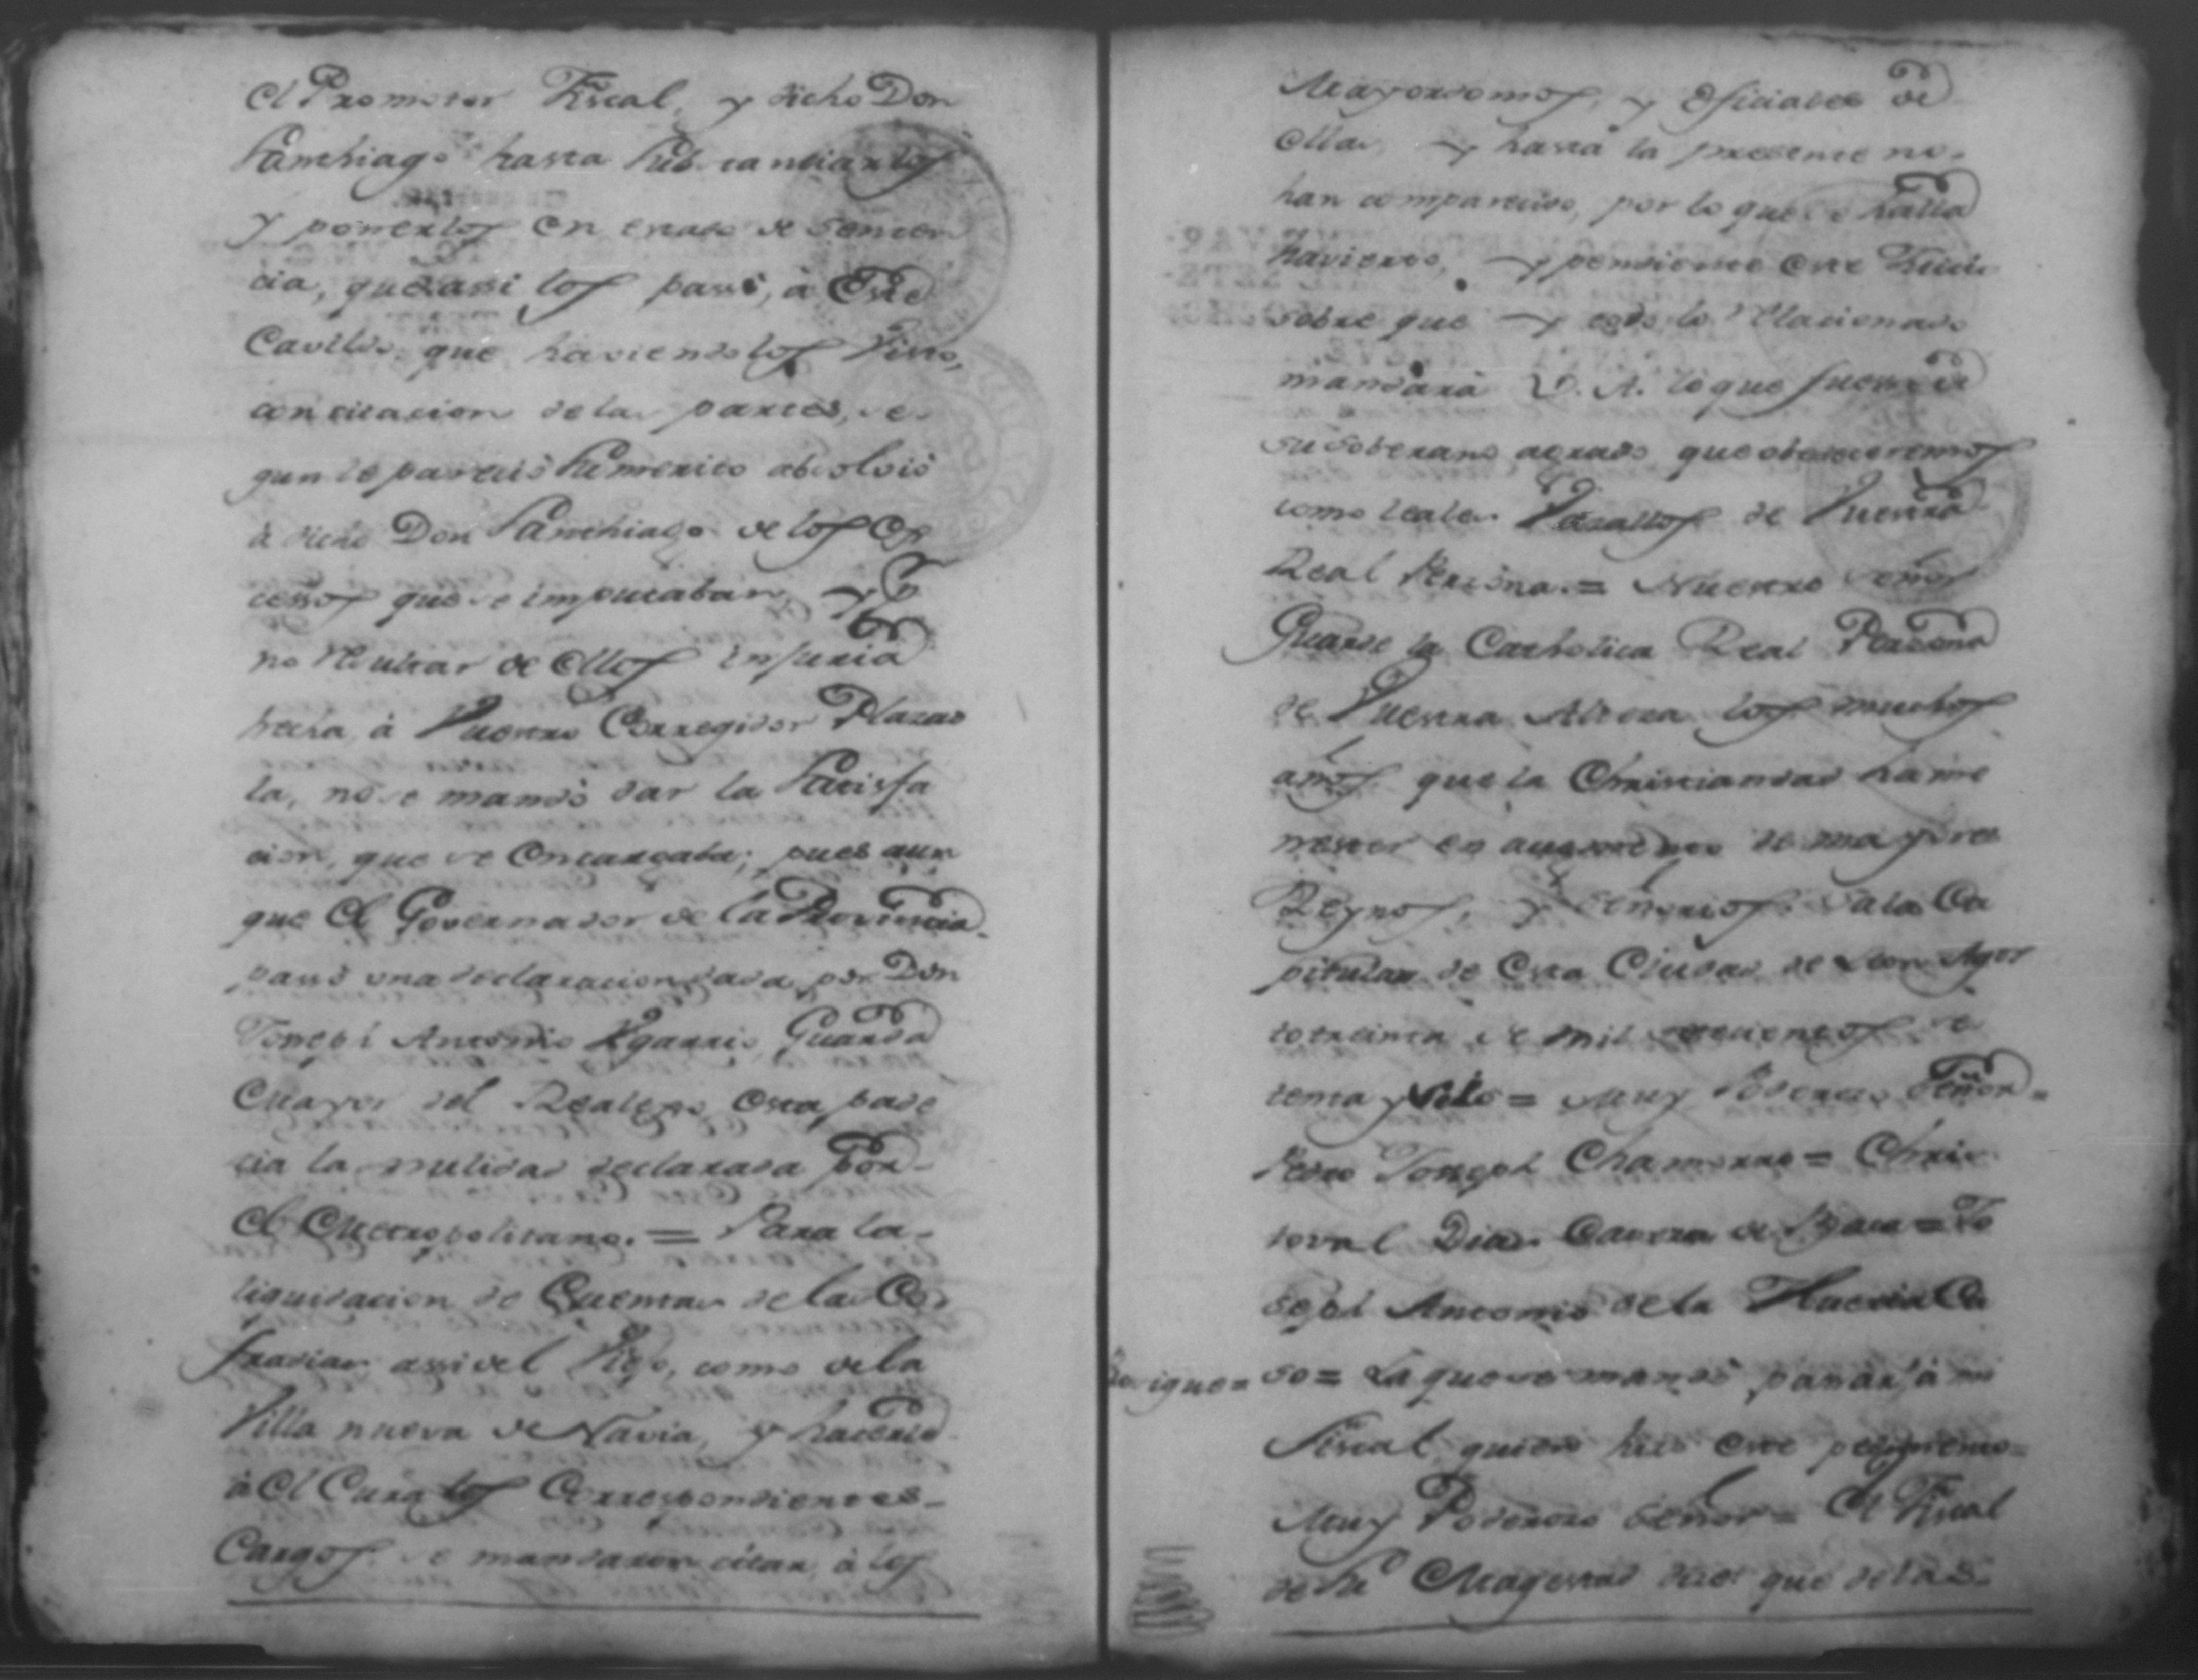 el Promotor Fiscal, y dicho Don
Santhiago hasta substanciarlos
y ponerlos en estado de senten
cia, que assi los passó, à Este
Cavildo, que haviendolos visto,
con citacion de las partes, se-
gun le pareció su merito absolvió
à dicho Don Santhiago de los Ex
cessos que se imputaban, y
no resultar de ellos injuria
hecha, à Vuestro Corregidor Plazao
la, no se mandó dar la Satisfa
cion, que se encargaba; pues aun
que el Governador de la Provincia
passó una declaracion dada, por Don
Joseph Antonio Ugarrio, Guarda
Mayor del Realejo, esta pade
cia la nulidad declarada por
el Metropolitano. = Para la
liquidacion de Quentas de las Co
fradias assi del Viejo, como de la
Villa nueva de Navia, y hacerle
à el Cura los Correspondientes
Cargos se mandaron citar, à los
Mayordomos, y Oficiales de
ellas, y hasta la presente no
han comparecido, por lo que se halla
havierto, y pendiente este Juicio
sobre que y todo lo relacionado
mandará V. A. lo que fuere de
su soberano agrado que obedeceremos
como leales Vasallos de Vuestra
Real Persona. = Nuestro Señor
Guarde la Catholica Real Persona
de Vuestra Alteza los muchos
años que la Christiandad ha me
nester en augmento de mayores
Reynos, y Señorios. Sala Ca
pitular de Esta Ciudad de Leon Agos
to treinta de mil setecientos se
tenta y ocho = Muy Poderoso Señor =
Pedro Joseph Chamorro = Chris
toval Diaz Caveza de Baca = Jo
seph Antonio de la Huerta Ca
so = La que se mandó passar, à mi
Fiscal, quien hizo este pedimento =
Muy Poderoso Señor = El Fiscal
de Su Magestad dice: que de las